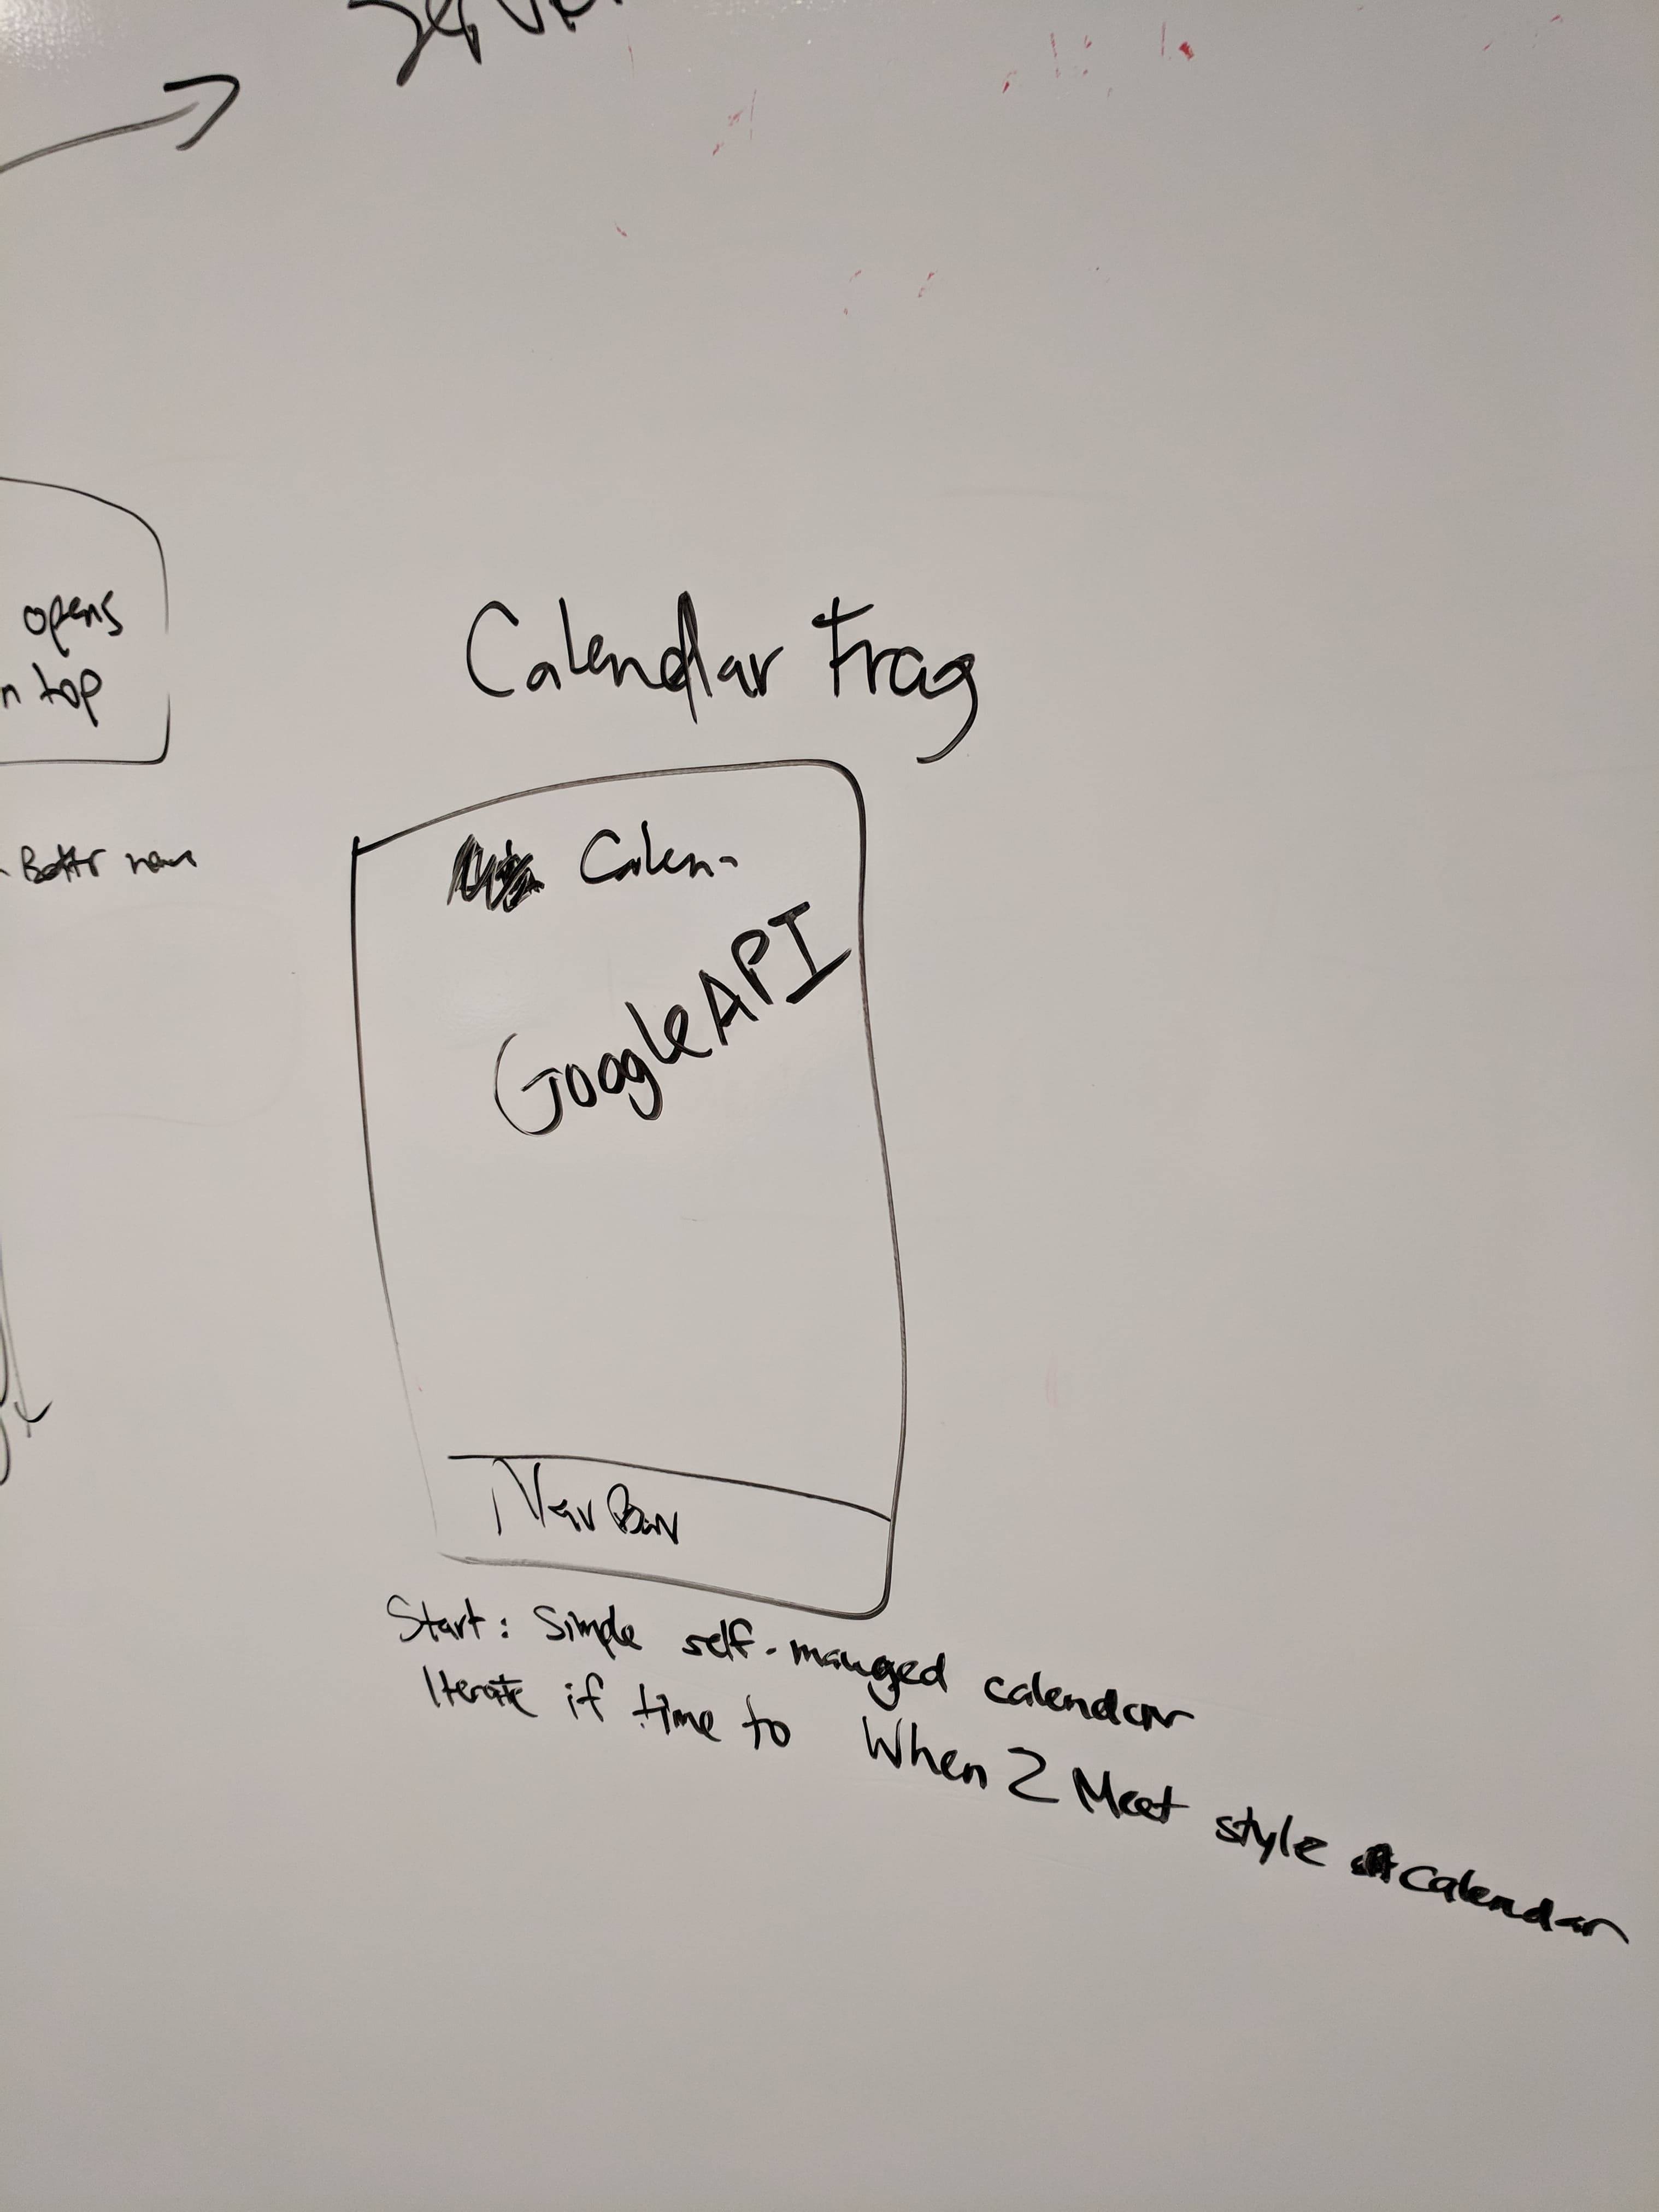 opens
n top
Better name
Calendar Frag
Calen-
Google API
Nav Bar
Start: Simple self-manged calendar
Iterate if time to When 2 Meet style calendar